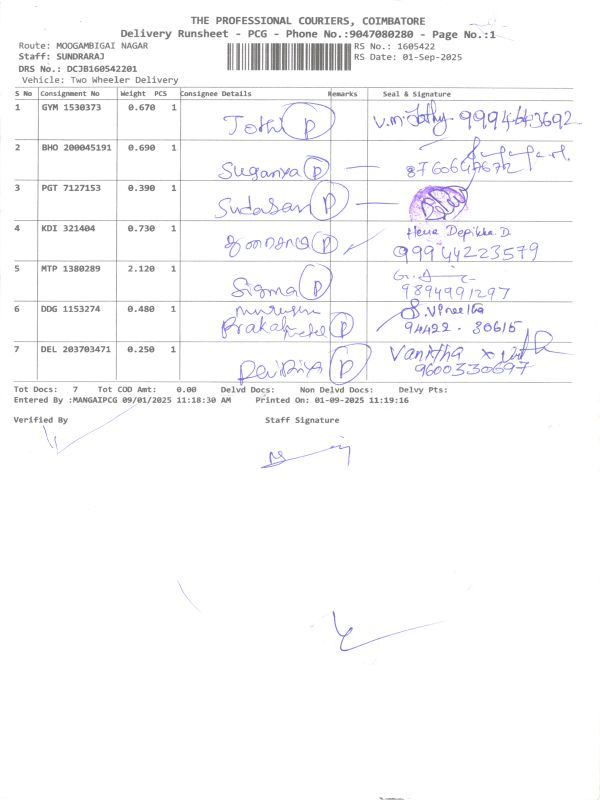 THE PROFESSIONAL COURIERS, COIMBATORE
Delivery Runsheet - PCG - Phone No.:9047080280 - Page No.:1
Route: MOOGAMBIGAI NAGAR RS No.: 1605422
Staff: SUNDRARAJ RS Date: 01-Sep-2025
DRS No.: DCJB160542201
Vehicle: Two Wheeler Delivery
S No Consignment No Weight PCS Consignee Details Remarks Seal & Signature
1 GYM 1530373 0.670 1 Jothi P V.M. Jothy 9994643692
2 BHO 200045191 0.690 1 Suganya P
3 PGT 7127153 0.390 1 Sudasan P
4 KDI 321404 0.730 1 P Hema Depikka.D
9994422 3579
5 MTP 1380289 2.120 1 Sigma P
9894991297
6 DDG 1153274 0.480 1 Murugan
Prakash P S. Vineetha
94422 - 30615
7 DEL 203703471 0.250 1 P Vanitha
9600330697
Tot Docs: 7 Tot COD Amt: 0.00 Delvd Docs: Non Delvd Docs: Delvy Pts:
Entered By :MANGAIPCG 09/01/2025 11:18:30 AM Printed On: 01-09-2025 11:19:16
Verified By Staff Signature